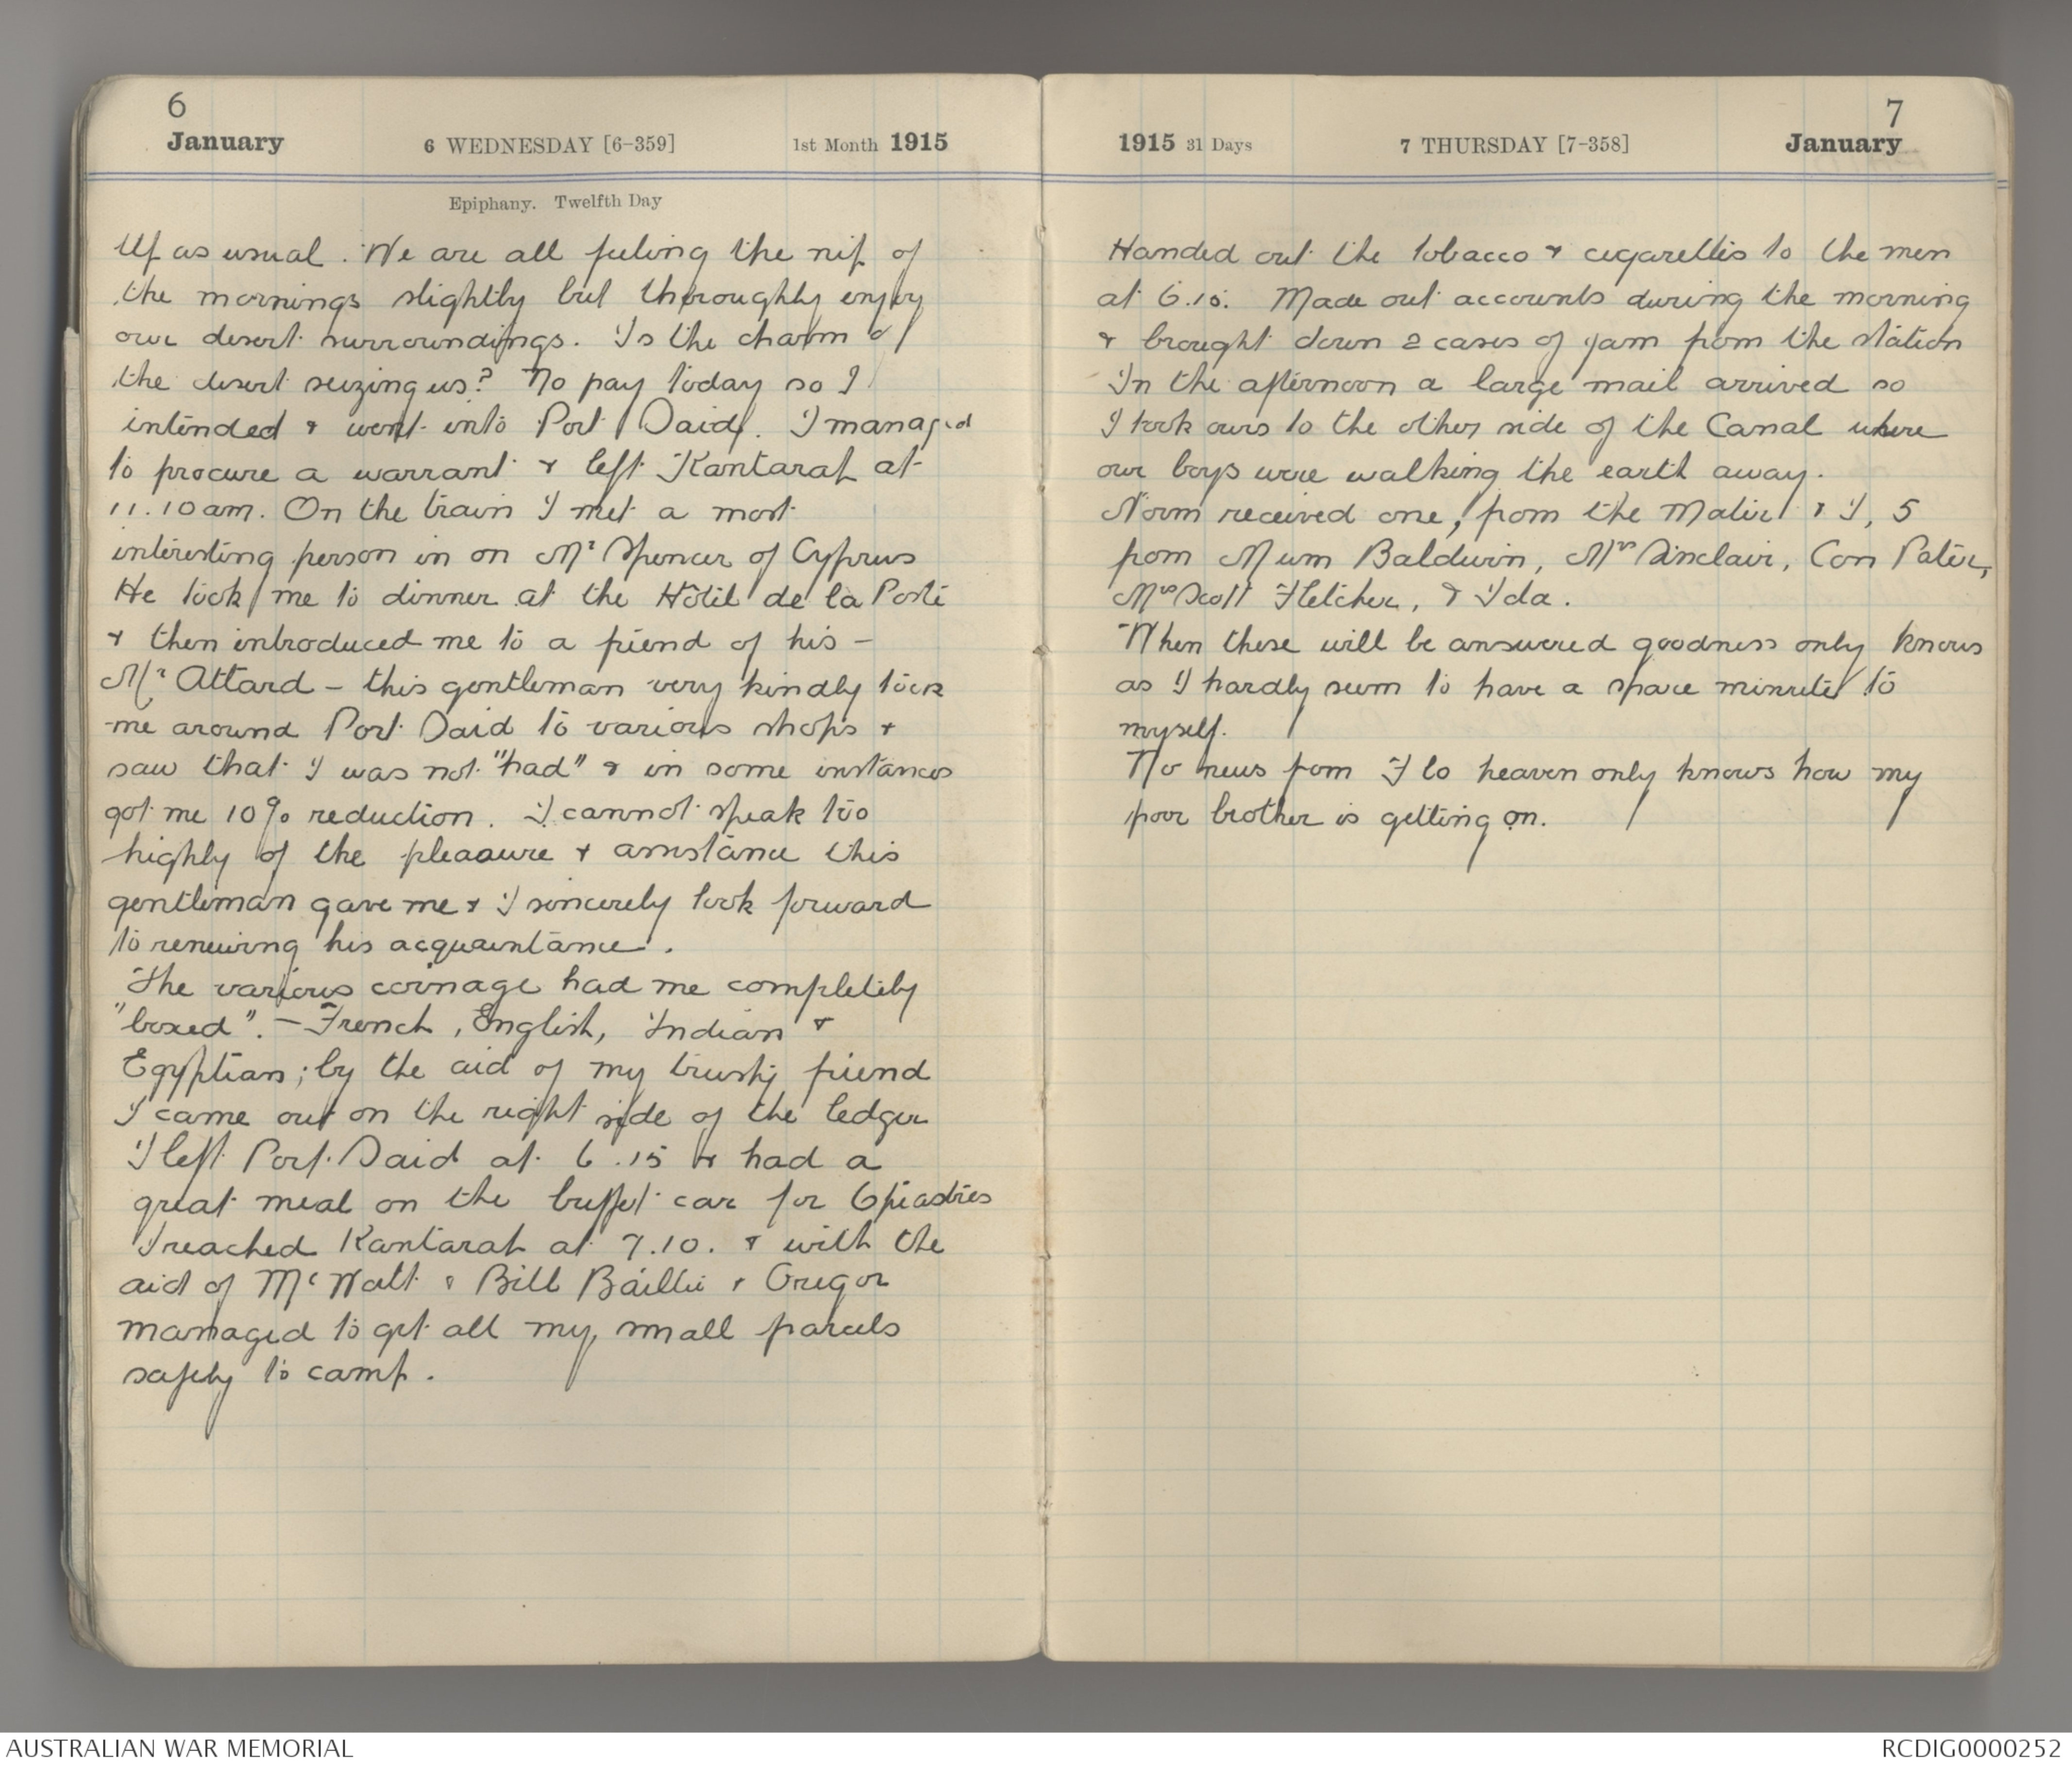 6
January 6 WEDNESDAY [6-359] 1st Month 1915
Epiphany. Twelfth Day
Up as usual. We are all feeling the nip of
the mornings slightly but thoroughly enjoy
our desert surroundings. Is the charm of
the desert seizing us? No pay today so I
intended & went into Port Said. I managed
to procure a warrant & left Kantarah at
11.10 am. On the train I met a most
interesting person in on Mr Spencer of Cyprus
He took me to dinner at the Hôtel de la Poste
& then introduced me to a friend of his –
Mr Attard – this gentleman very kindly took
me around Port Said to various shops &
saw that I was not "had" & in some instances
got me 10% reduction. I cannot speak too
highly of the pleasure & assistance this
gentleman gave me & I sincerely look forward
to renewing his acquaintance.
The various coinage had me completely
"boxed". – French, English, Indian &
Egyptian; by the aid of my trusty friend
I came out on the right side of the ledger
I left Port Said at 6.15 & had a
great meal on the buffet car for 6 piastres
I reached Kantarah at 7.10. & with the
aid of McWatt & Bill Baillie & Gregor
managed to get all my small parcels
safely to camp.
7
1915 31 Days 7 THURSDAY [7-358] January
Handed out the tobacco & cigarettes to the men
at 6.15. Made out accounts during the morning
& brought down 2 cases of jam from the station
In the afternoon a large mail arrived so
I took ours to the other side of the Canal where
our boys were walking the earth away.
Norm received one, from the Mater & I, 5
from Mum Baldwin, Mrs Sinclair, Con Pater,
Mrs Scott Fletcher, & Ida.
When these will be answered goodness only knows
as I hardly seem to have a spare minute to
myself.
No news from Flo heaven only knows how my
poor brother is getting on.
AUSTRALIAN WAR MEMORIAL
RCDIG0000252